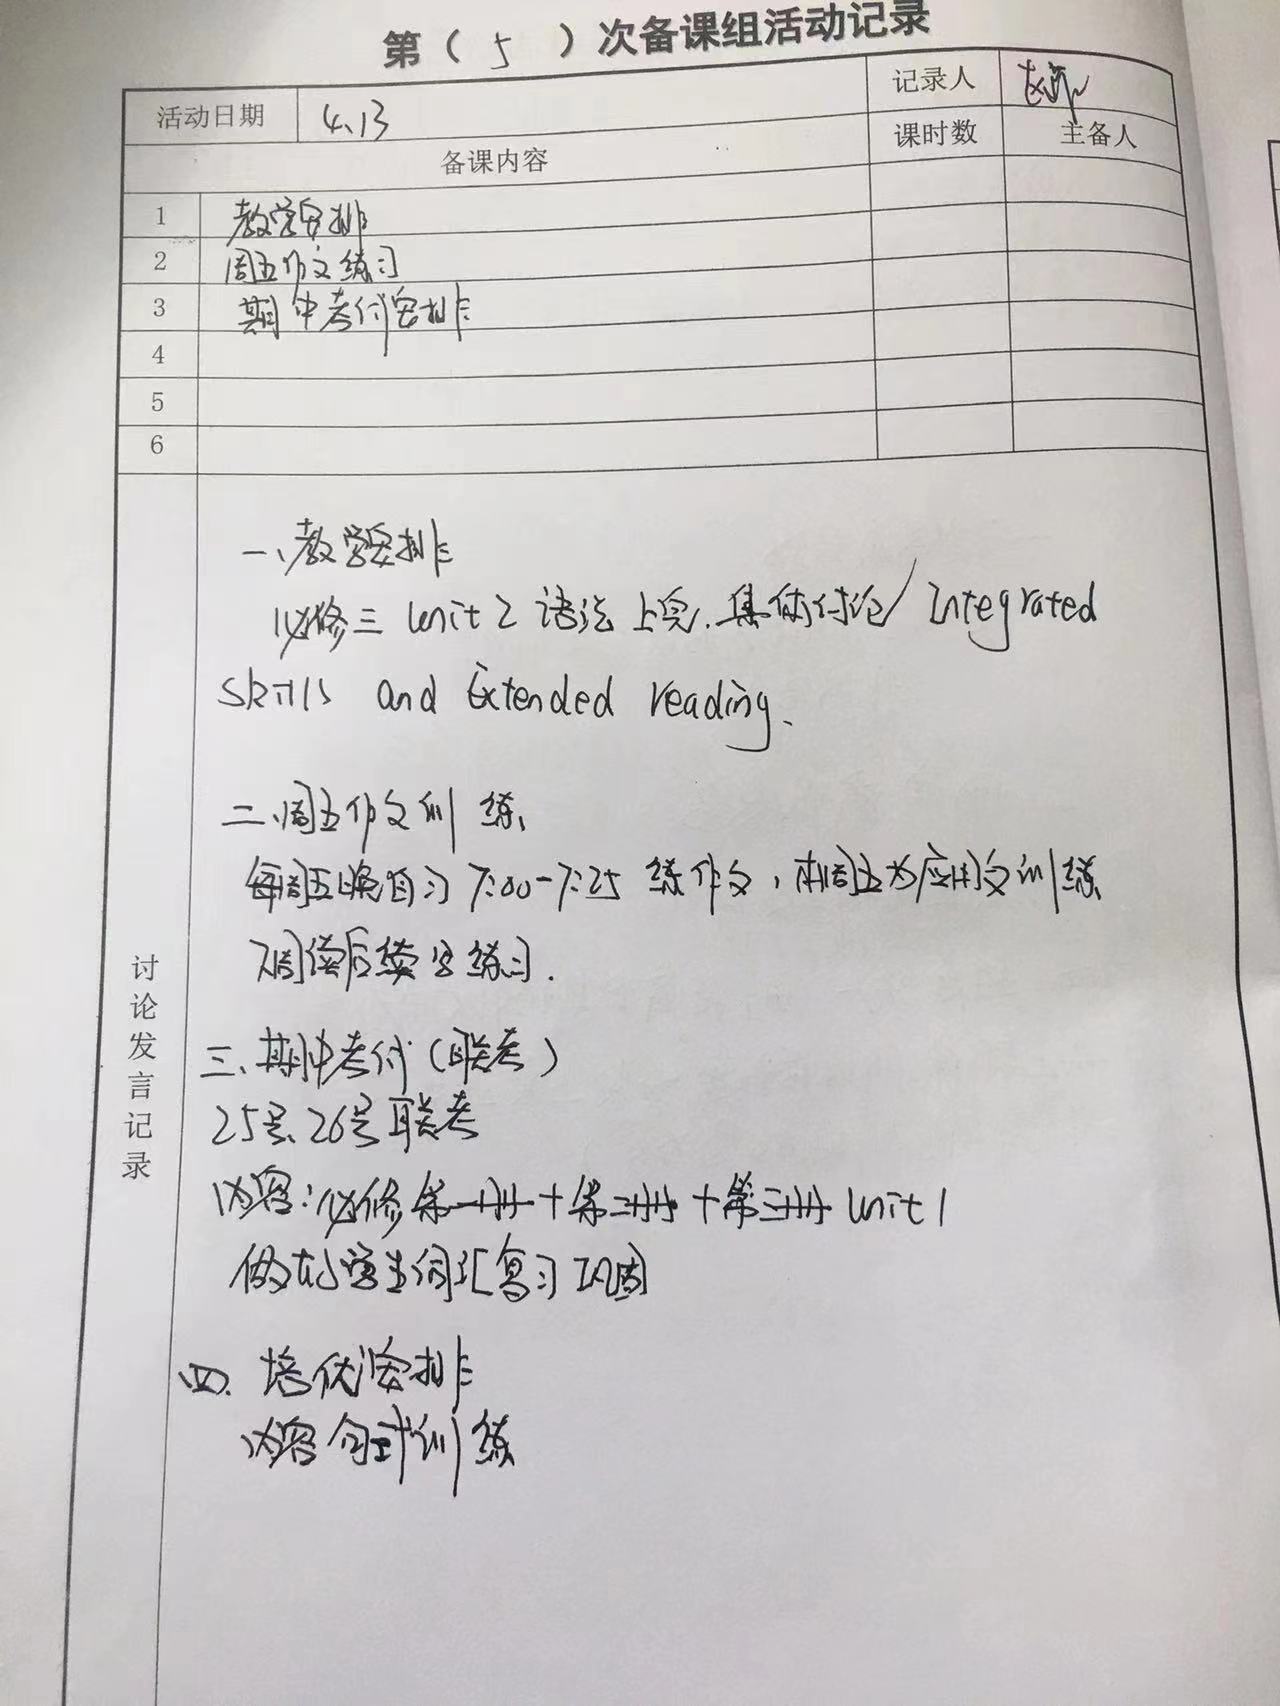 第（ 5 ）次备课组活动记录
活动日期 4.13 记录人
备课内容 课时数 主备人
1 教学安排
2 周五作文练习
3 期中考试安排
4
5
6
讨论发言记录
一、教学安排
必修三 Unit 2 语法上完. 集体讨论 Integrated
skills and Extended reading.
二、周五作文训练
每周五晚自习 7:00-7:25 练作文，本周五为应用文训练
下周读后续写练习.
三、期中考试（联考）
25号、26号联考
内容：必修第一册+第二册+第三册 Unit 1
做好学生词汇复习巩固
四、培优安排
内容 句式训练